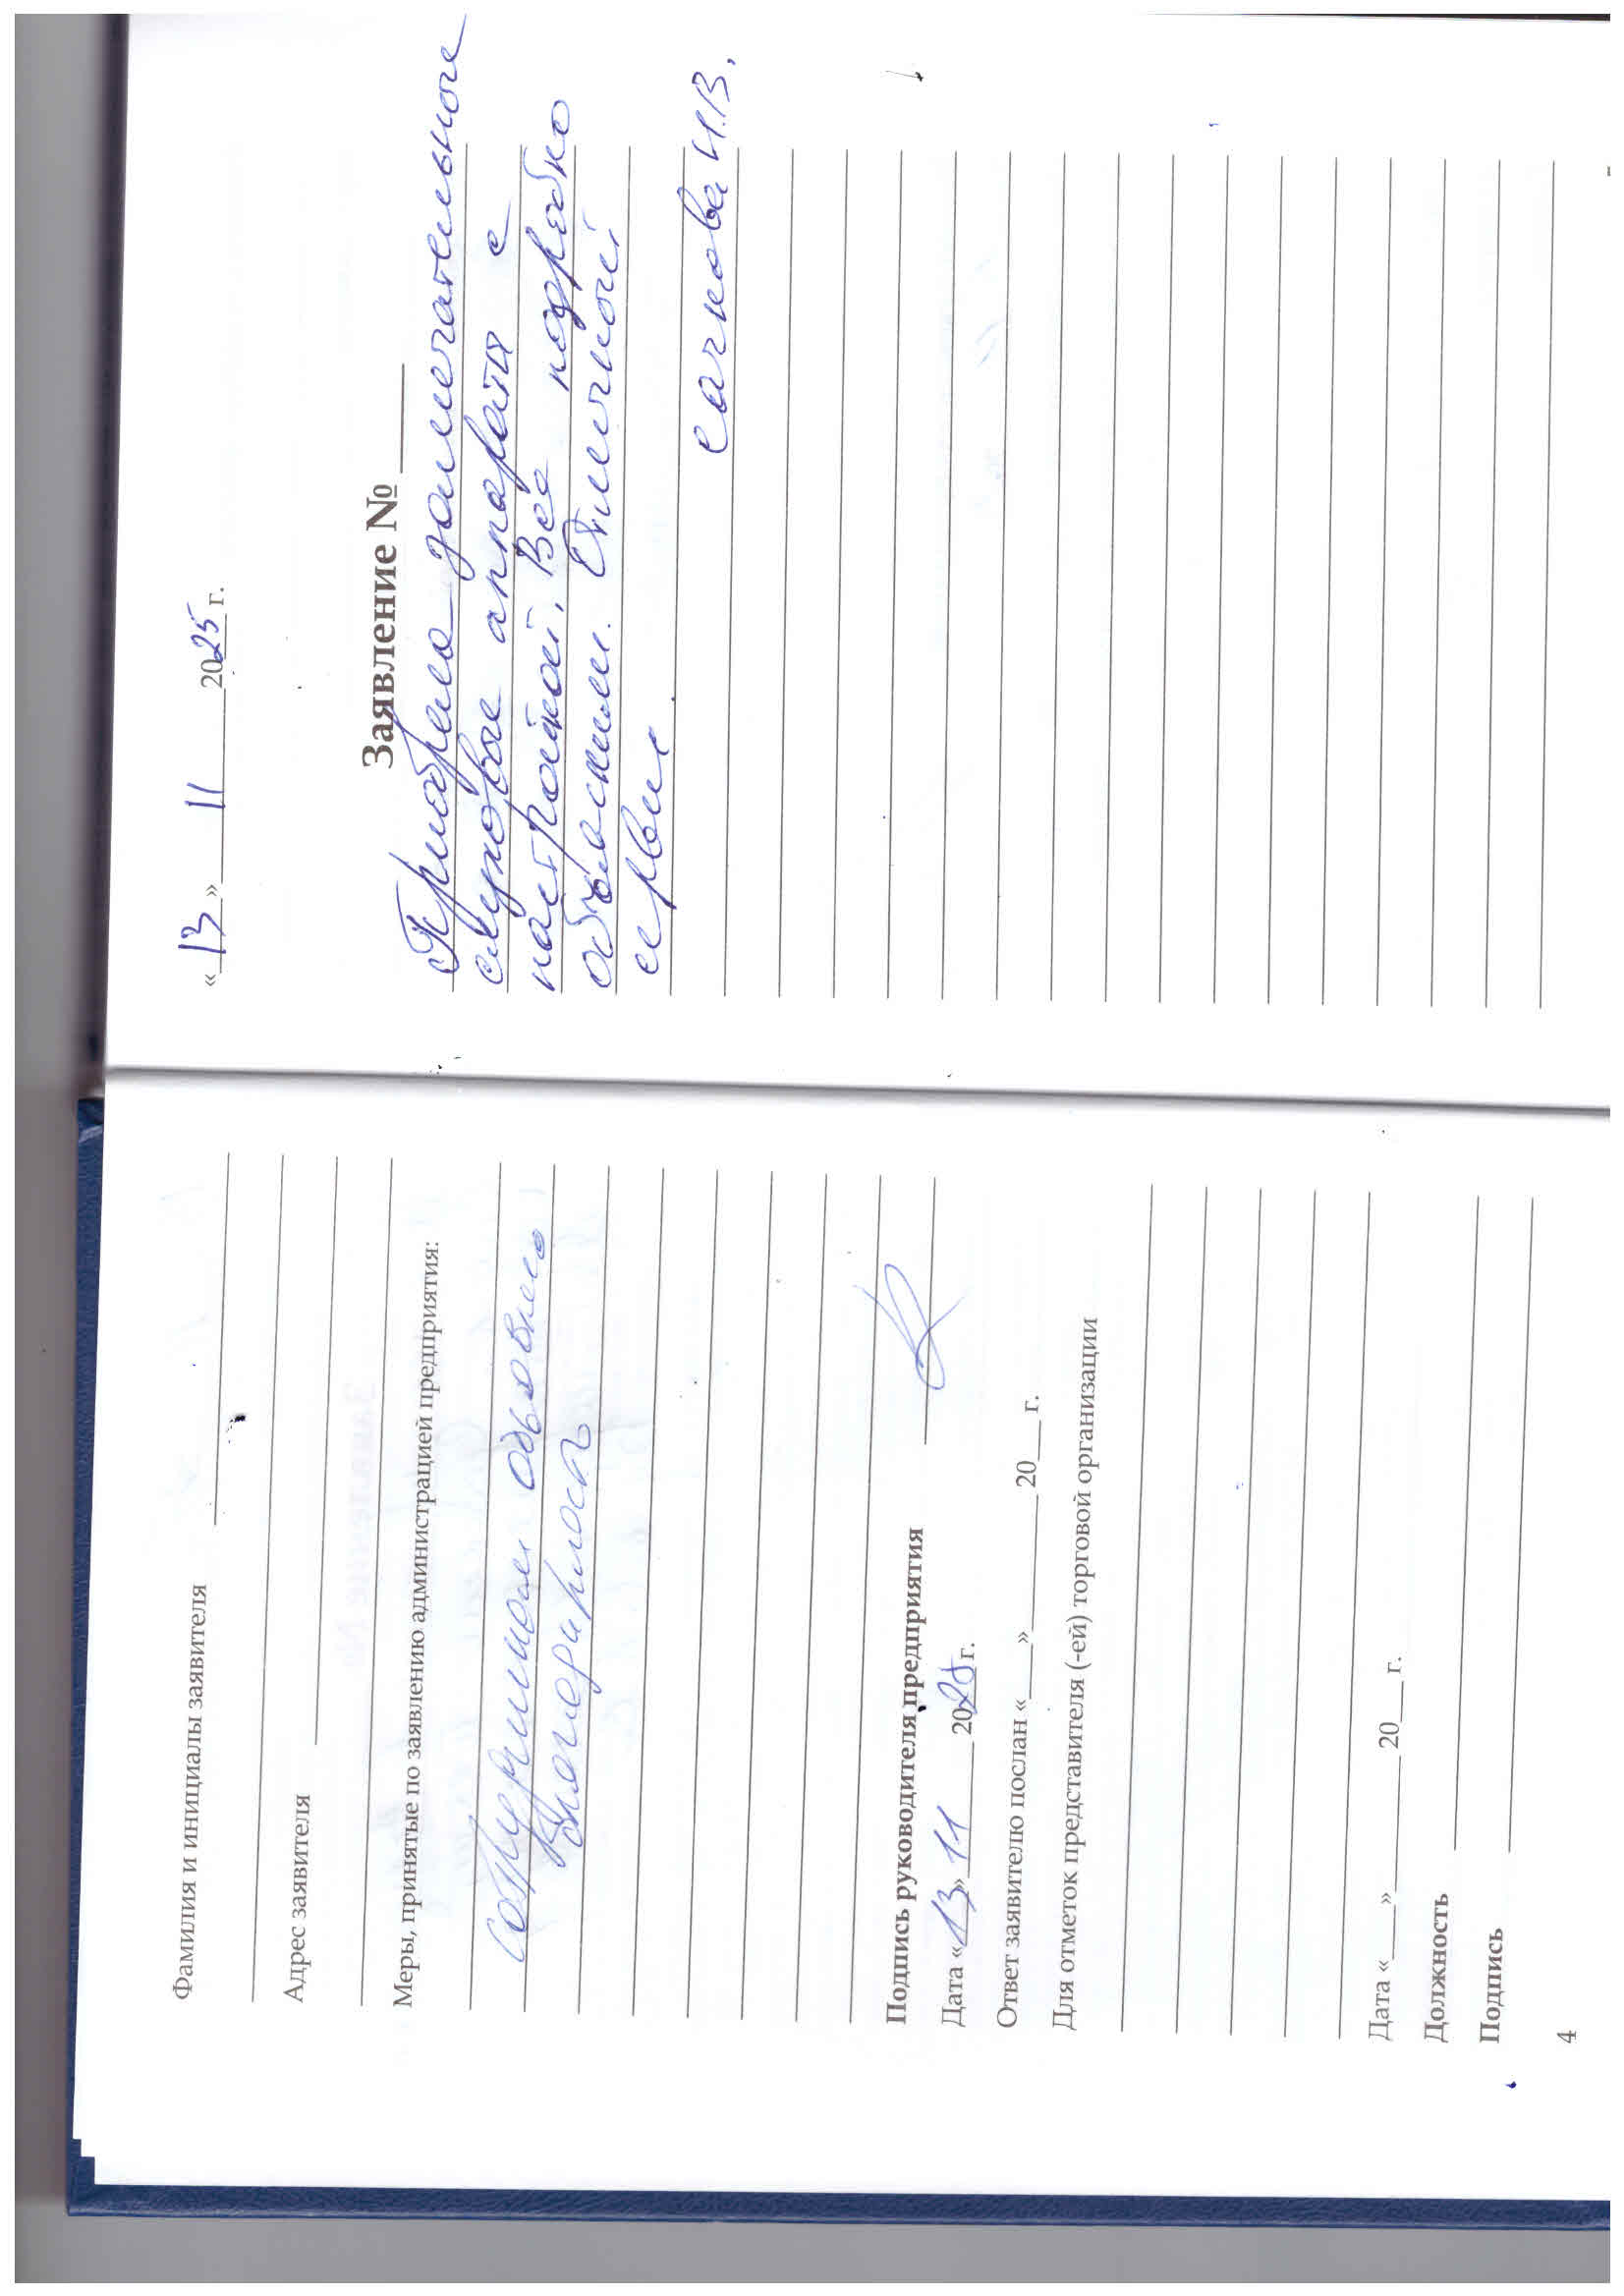 Фамилия и инициалы заявителя
Адрес заявителя
Меры, принятые по заявлению администрацией предприятия:
сотрудникам объявлена
благодарность
Подпись руководителя предприятия
Дата «13» 11 2025 г.
Ответ заявителю послан «___»________20___г.
Для отметок представителя (-ей) торговой организации
Дата «___»________ 20___ г.
Должность
Подпись
4
«13» 11 2025 г.
Заявление №
Приобрела замечательные
слуховые аппараты с
настройкой. Все подробно
объяснили. Отличный
сервис
Сачкова И.В.